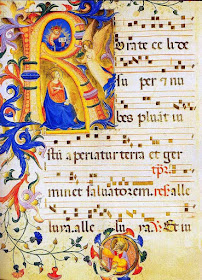 Rorate ce li de
su per et nu
bes pluāt iu
stū aperiatur terra et ger
minet saluatorem. alle
luia. alle luia Et iu